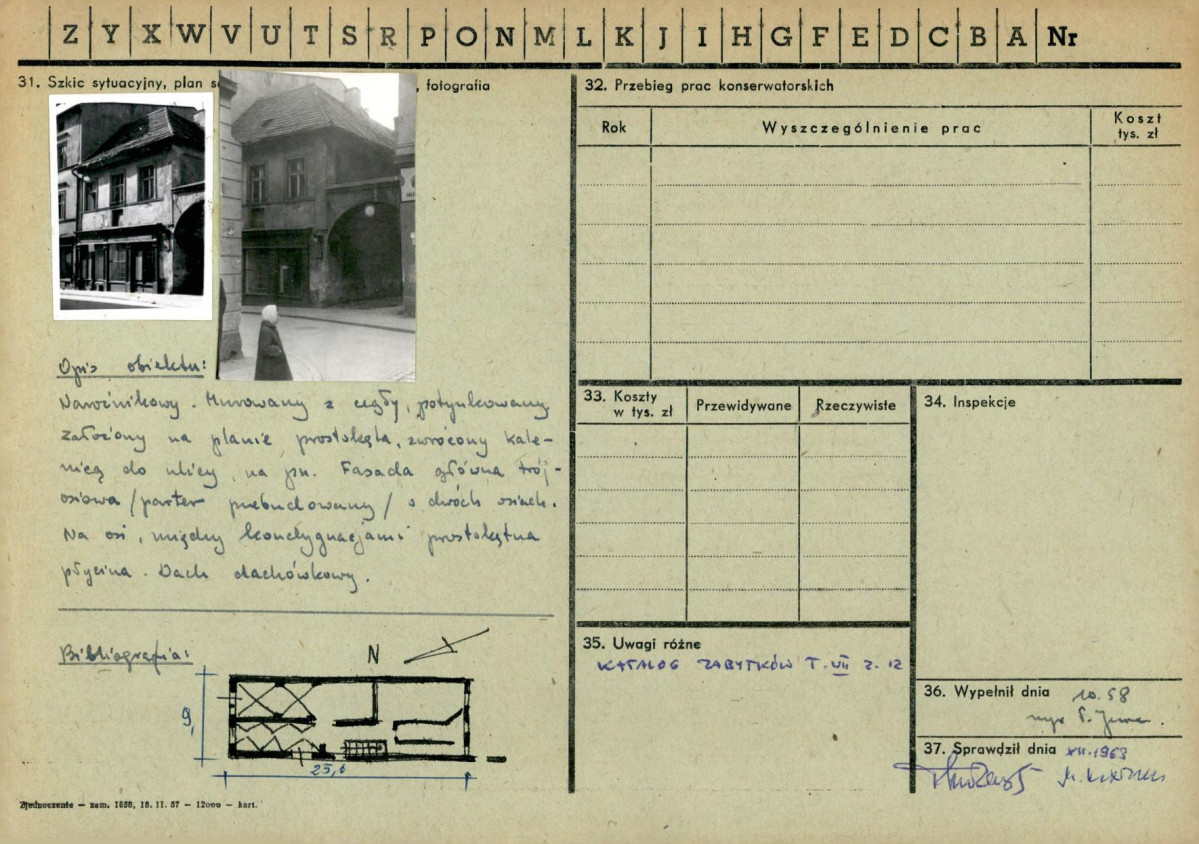 Z Y X W V U T S R P O N M L K J I H G F E D C B A Nr
31. Szkic sytuacyjny, plan s , fotografia
Opis obiektu:
Narożnikowy. Murowany z cegły, potynkowany
założony na planie prostokąta, zwrócony kale-
nicą do ulicy, na pn. Fasada główna trój-
osiowa /parter przebudowany/ o dwóch osiach.
Na osi, między kondygnacjami prostokątna
płycina. Dach dachówkowy.
Bibliografia:
N
9,
25,6
Zjednoczenie — zam. 1858, 18. 11. 57 — 12000 — kart.
32. Przebieg prac konserwatorskich
Rok Wyszczególnienie prac Koszt
tys. zł
33. Koszty
w tys. zł Przewidywane Rzeczywiste
34. Inspekcje
35. Uwagi różne
KATALOG ZABYTKÓW T. VII Z. 12
36. Wypełnił dnia 10.58
mgr
37. Sprawdził dnia XII.1963